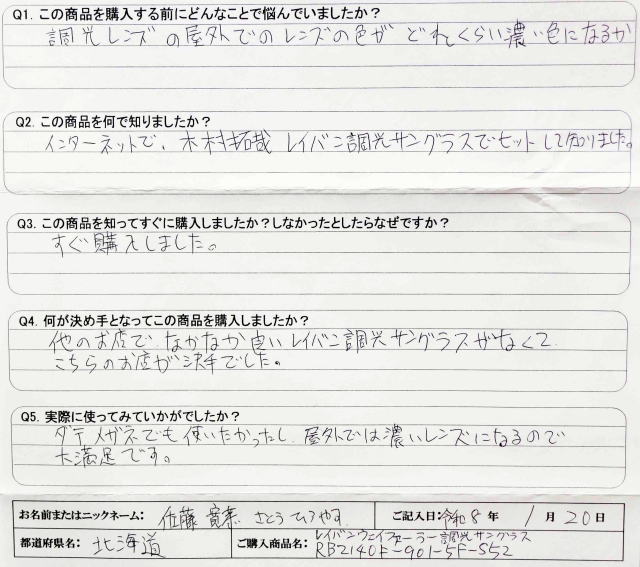 Q1. この商品を購入する前にどんなことで悩んでいましたか？
調光レンズの屋外でのレンズの色がどれくらい濃い色になるか
Q2. この商品を何で知りましたか？
インターネットで、木村拓哉 レイバン調光サングラスでセットして知りました。
Q3. この商品を知ってすぐに購入しましたか？しなかったとしたらなぜですか？
すぐ購入しました。
Q4. 何が決め手となってこの商品を購入しましたか？
他のお店で、なかなか良いレイバン調光サングラスがなくて
こちらのお店が決手でした。
Q5. 実際に使ってみていかがでしたか？
ダテメガネでも使いたかったし、屋外では濃いレンズになるので
大満足です。
お名前またはニックネーム： 佐藤 さとう ひろやす ご記入日：令和8年 1月20日
都道府県名： 北海道 ご購入商品名： レイバンウェイファーラー調光サングラス
RB2140F-901-5F-S52